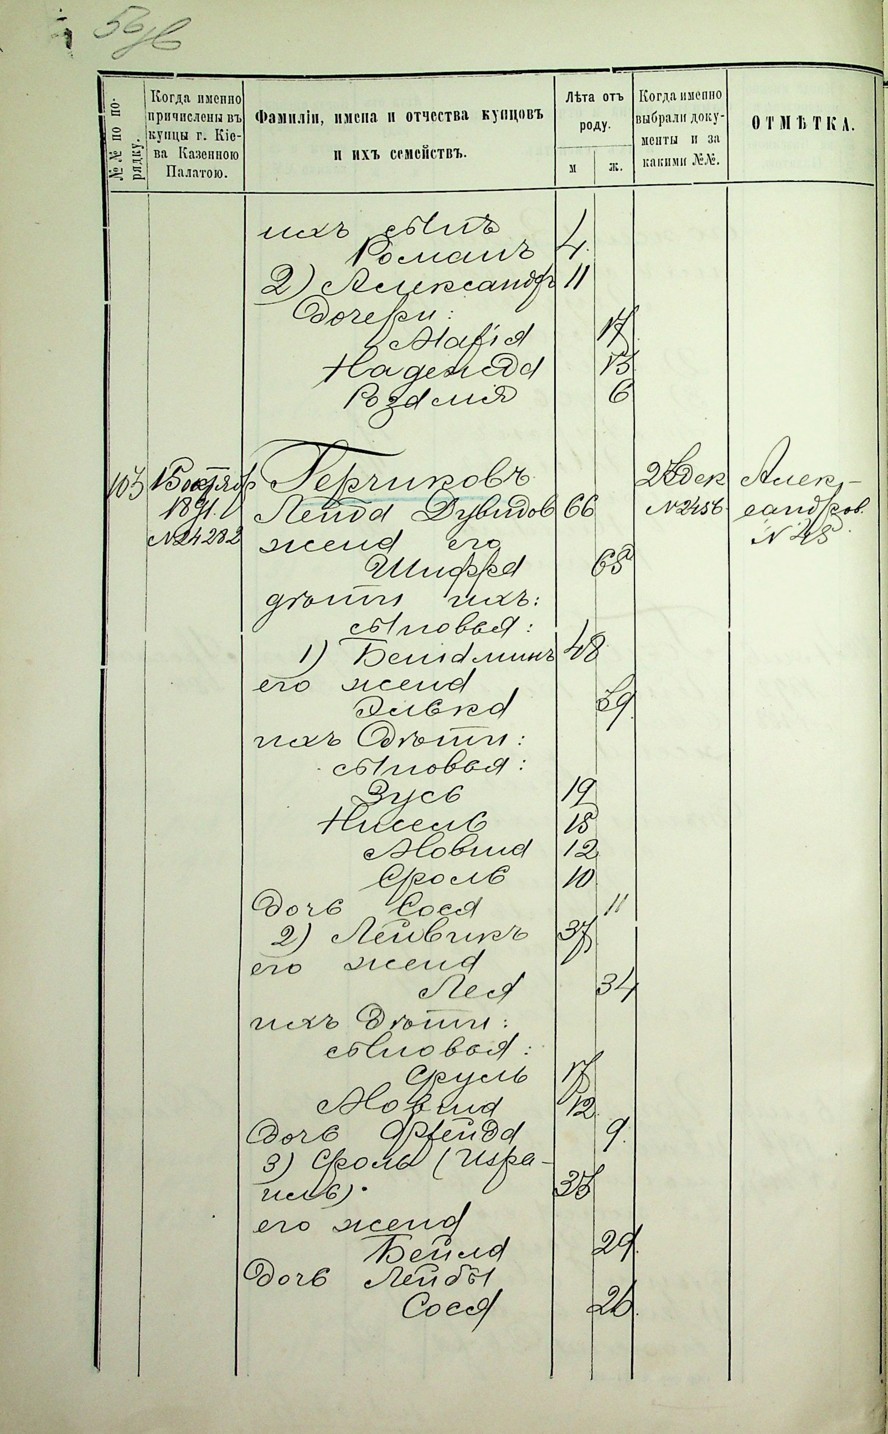 №№ по по-
рядку.
Когда именно
причислены въ
купцы г. Кіе-
ва Казенною
Палатою.
Фамиліи, имена и отчества купцовъ
и ихъ семействъ.
Лѣта отъ
роду.
м
ж.
Когда именно
выбрали доку-
менты и за
какими №№.
ОТМѢТКА.
ихъ сынъ
Романъ 4.
2) Александръ 11
Дочери:
Марія 17
Надежда 13
Розалія 6
103 15 октябр Герчиковъ 23 дек Алек-
1891. Лейба Дувидов 66 №2456 сандров.
№24282 жена его № 45
Шифра 65
дѣти ихъ:
сыновья:
1) Беніаминъ 48
его жена
Элька 39
ихъ Дѣти:
сыновья:
Зусь 19
Нисель 15
Мовша 12
Сроль 10
Дочь Сося 11
2) Лейвикъ 37
его жена
Лея 34
ихъ Дѣти:
сыновья:
Сруль 17
Мовша 12
Дочь Фрейда 9.
3) Сроль (Изра-
иль). 33
его жена
Бейла 29.
Дочь Лейбы
Сося 26